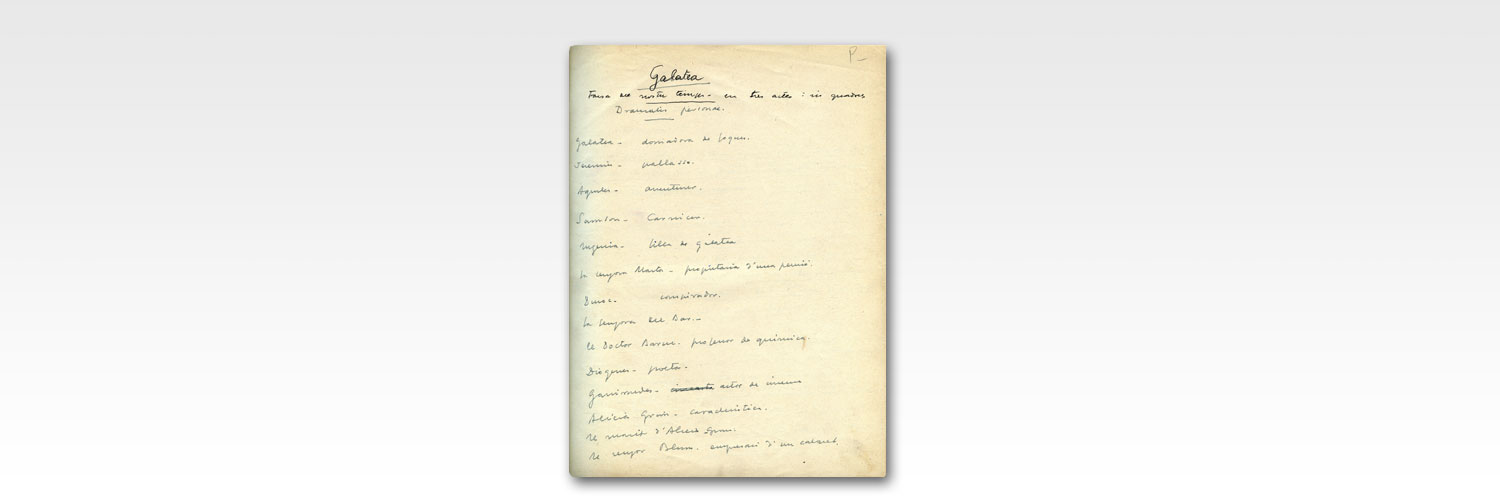 P_
Galatea
Farsa del nostre temps - en tres actes : sis quadres
Dramatis personae.
Galatea - domadora de foques.
Jeremies - pallasso.
Aquil·les - aventurer.
Samson - Carnicer.
Eugenia - filla de Galatea
La senyora Marta - propietaria d'una pensió.
conspirador.
La senyora del Bar. -
El Doctor professor de química.
Diogenes - poeta.
Ganimedes - cineasta actor de cinema
Alicia - característica.
El marit d'Alicia
El senyor Blum. empresari d'un cabaret.